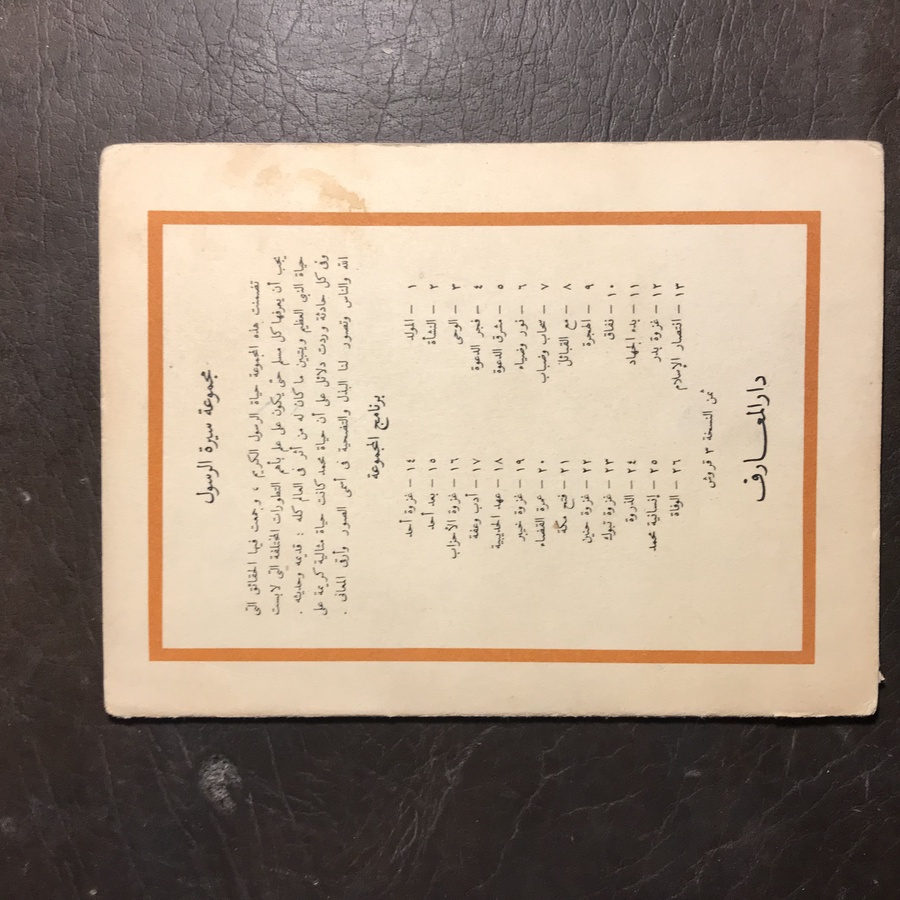 مجموعة سيرة الرسول
تضمنت هذه المجموعة حياة الرسول الكريم ، وجمعت فيها الحقائق التى
يجب أن يعرفها كل مسلم حتى يكون على علم بأهم التطورات المختلفة التى لابست
حياة النبى العظيم ويتبين ما كان له من أثر فى العالم كله : قديمه وحديثه .
وفى كل حادثة وردت دلائل على أن حياة محمد كانت حياة مثالية كريمة على
الله والناس وتصور لنا البذل والتضحية فى أسمى الصور وأرق المعانى .
برنامج المجموعة
١ – المولد
٢ – النشأة
٣ – الوحى
٤ – فجر الدعوة
٥ – مشرق الدعوة
٦ – نور وضياء
٧ – سحاب وضباب
٨ – مع القبائل
٩ – الهجرة
١٠ – نفاق
١١ – بدء الجهاد
١٢ – غزوة بدر
١٣ – انتصار الإسلام
١٤ – غزوة أحد
١٥ – بعد أحد
١٦ – غزوة الأحزاب
١٧ – أدب وعفة
١٨ – عهد الحديبية
١٩ – غزوة خيبر
٢٠ – عمرة القضاء
٢١ – فتح مكة
٢٢ – غزوة حنين
٢٣ – غزوة تبوك
٢٤ – الذروة
٢٥ – إنسانية محمد
٢٦ – الوفاة
ثمن النسخة ٣ قروش
دار المعارف